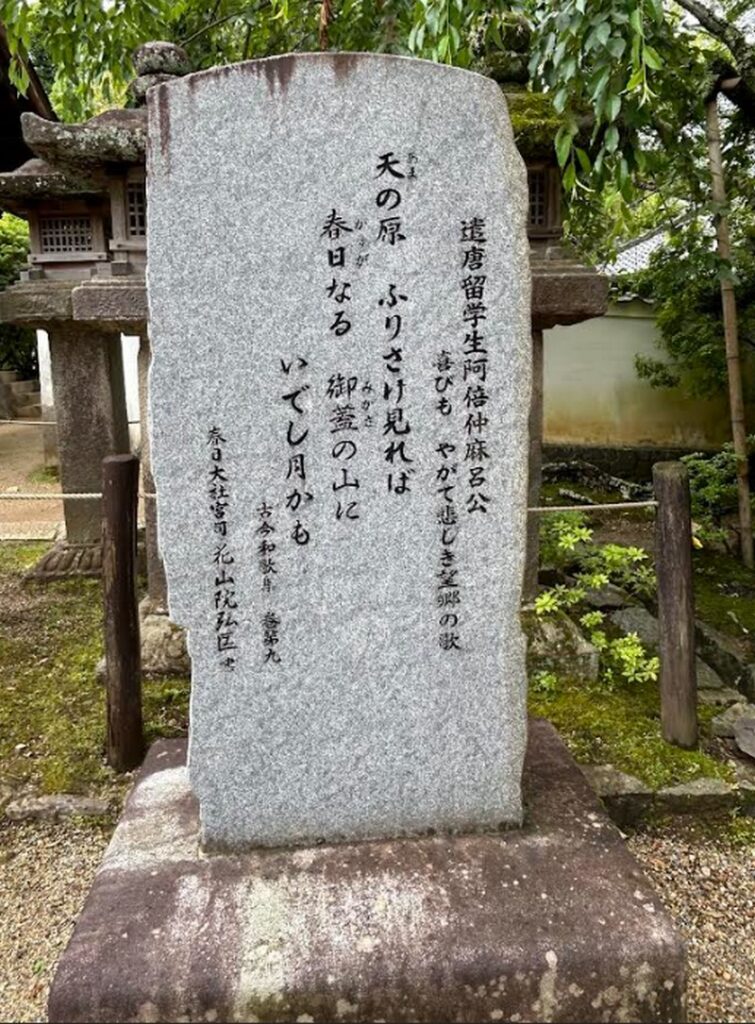 遣唐留学生阿倍仲麻呂公
喜びも やがて悲しき望郷の歌
あま
天の原 ふりさけ見れば
かすが みかさ
春日なる 御蓋の山に
いでし月かも
古今和歌集 巻第九
春日大社宮司 花山院弘匡